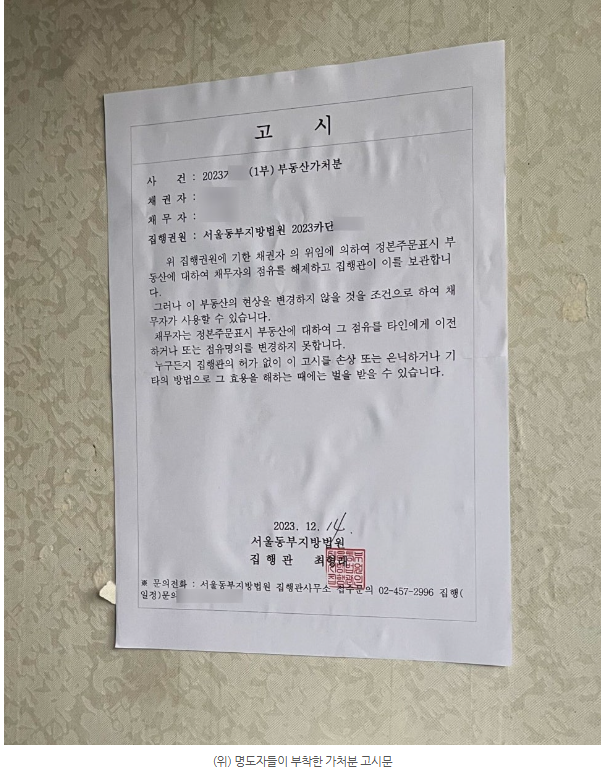 고 시
사 건 : 2023가 (1부) 부동산가처분
채 권 자 :
채 무 자 :
집행권원 : 서울동부지방법원 2023카단
위 집행권원에 기한 채권자 의 위임에 의하여 정본주문표시 부
동산에 대하여 채무자의 점유를 해제하고 집행관이 이를 보관합니
다.
그러나 이 부동산의 현상을 변경하지 않을 것을 조건으로 하여 채
무자가 사용할 수 있습니다.
채무자는 정본주문표시 부동산에 대하여 그 점유를 타인에게 이전
하거나 또는 점유명의를 변경하지 못합니다.
누구든지 집행관의 허가 없이 이 고시를 손상 또는 은닉하거나 기
타의 방법으로 그 효용을 해하는 때에는 벌을 받을 수 있습니다.
2023. 12. 14.
서울동부지방법원
집 행 관
※ 문의전화 : 서울동부지방법원 집행관사무소 접수문의 02-457-2996 집행(
일정)문의
(위) 명도자들이 부착한 가처분 고시문